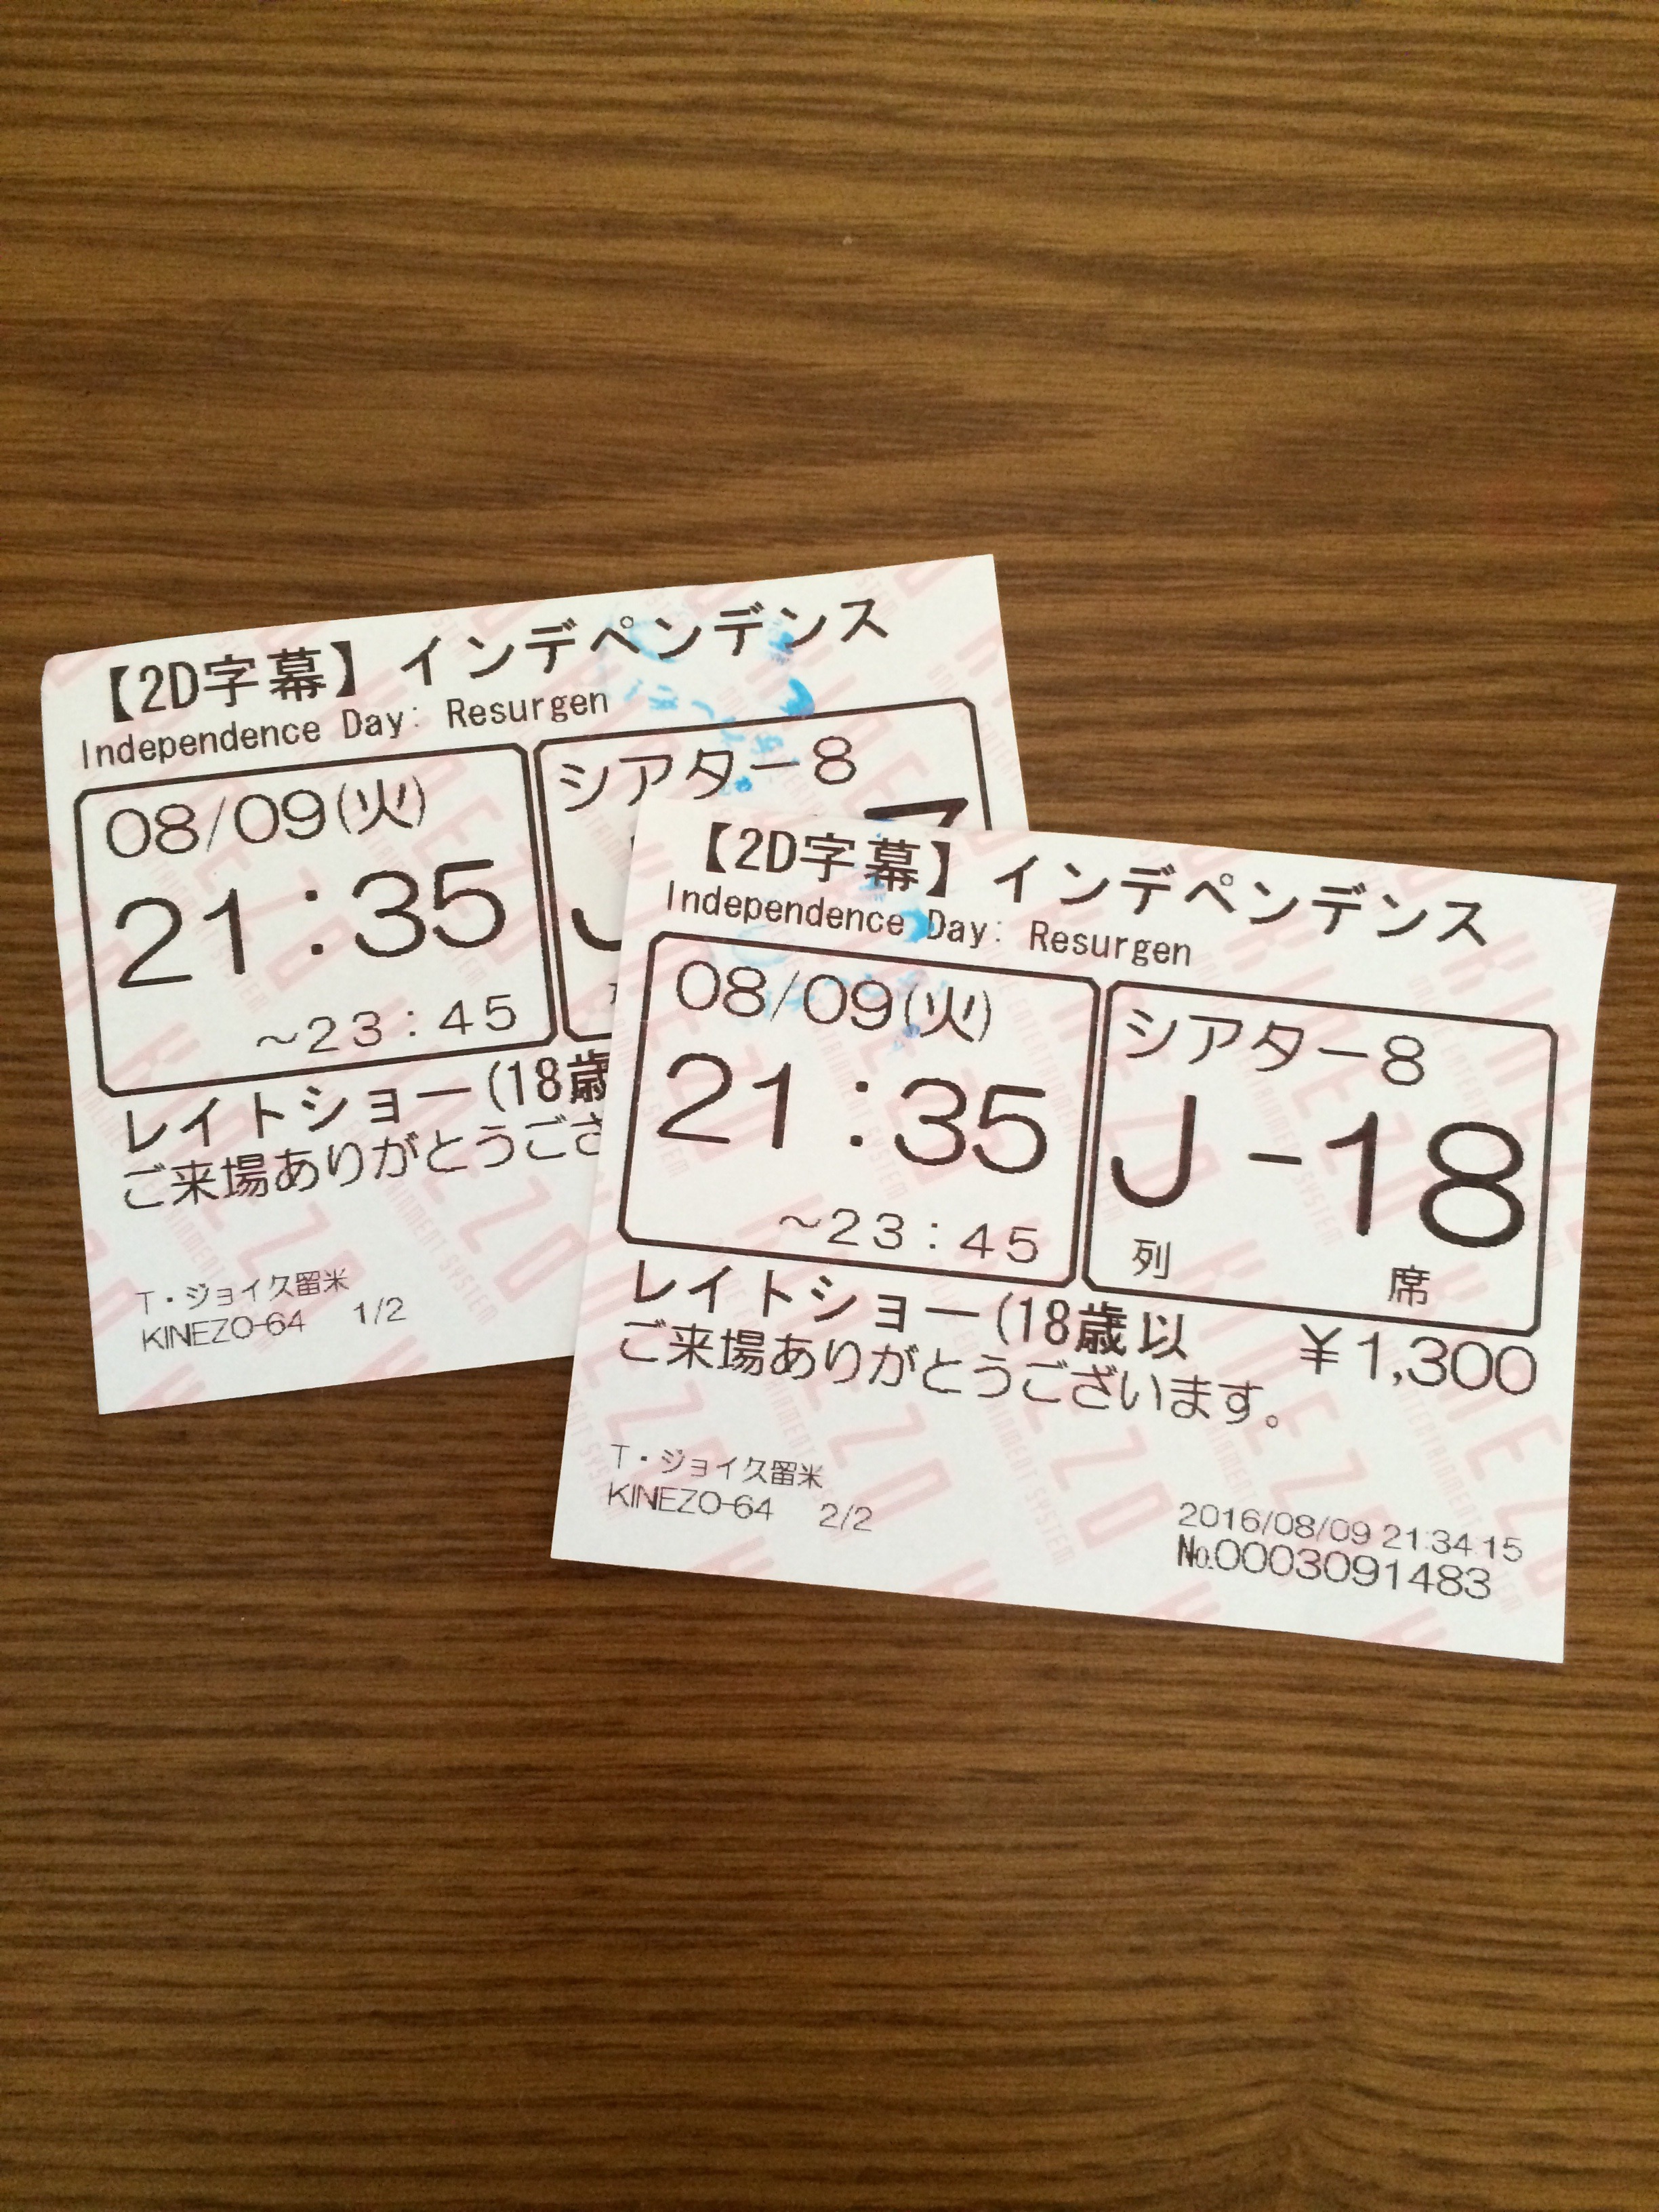 【2D字幕】インデペンデンス
Independence Day: Resurgen
08/09(火)
21:35
~23:45
シアター8
レイトショー(18歳
ご来場ありがとうござ
T・ジョイ久留米
KINEZO-64 1/2
【2D字幕】インデペンデンス
Independence Day: Resurgen
08/09(火)
21:35
~23:45
シアター8
J-18
列 席
レイトショー(18歳以 ¥1,300
ご来場ありがとうございます。
T・ジョイ久留米
KINEZO-64 2/2
2016/08/09 21:34:15
№0003091483